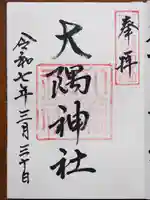 奉拝
大隅神社
令和七年三月三十日